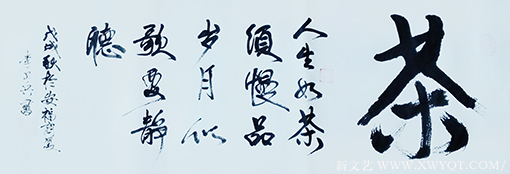 茶
人生如茶
须慢品
岁月似
歌要静
聽
戊戌秋於安
新文艺 WWW.XWYQT.COM/